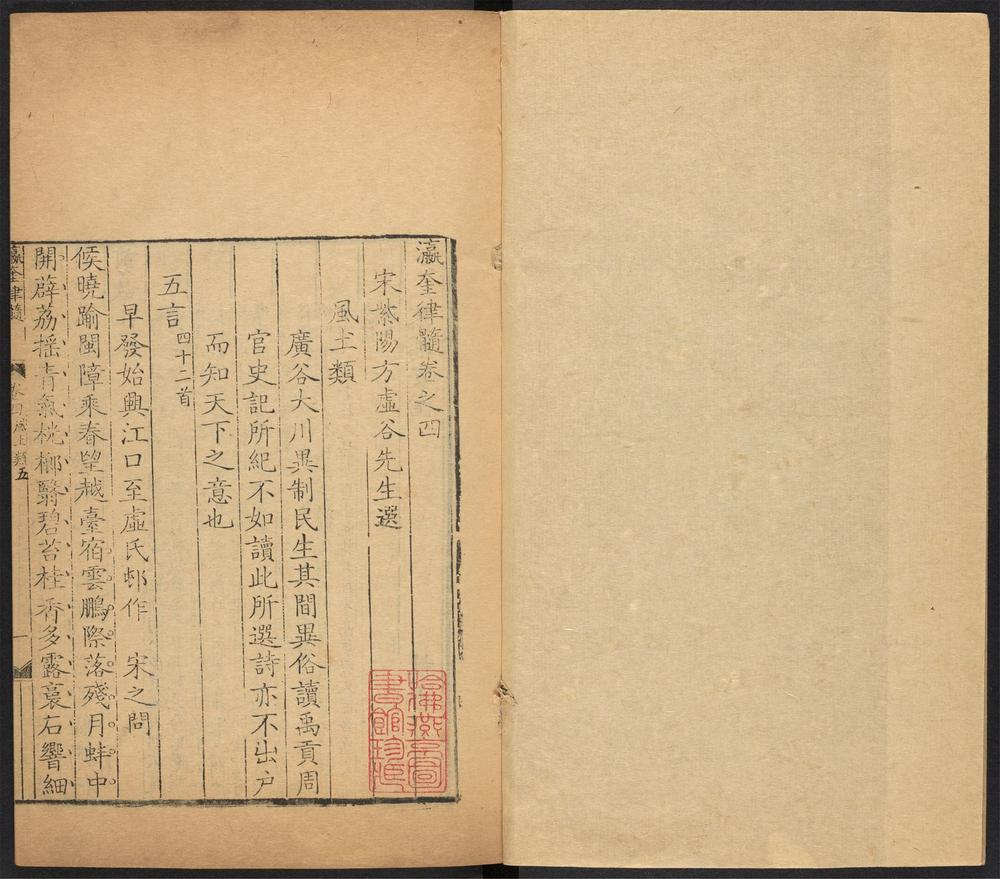 瀛奎律髓卷之四
宋紫陽方虛谷先生選
風土類
廣谷大川異制民生其間異俗讀禹貢周
官史記所紀不如讀此所選詩亦不出户
而知天下之意也
五言四十二首
早發始興江口至虛氏邨作 宋之問
候曉踰閩障乘春望越臺宿雲鵬際落殘月蚌中
開薜荔摇青氣桄榔翳碧苔桂香多露裛石響細
瀛奎律髓
卷四風土類
五
哈佛燕京圖書館珍藏